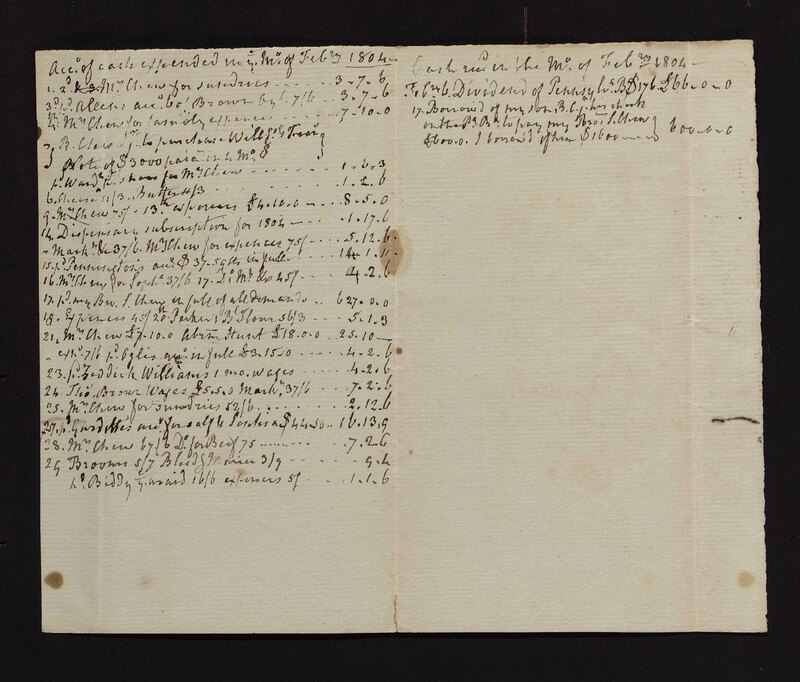 Acct. of cash expended in ye. Mo. of Feby. 1804
1. 2d. Mrs. Chew for sundries - - - - 3 - 7 . 6
3d. pd. acct. Brown by do. 7/6 - - 3 . 7 . 6
Mrs. Chew for family expences - - - - 7 . 10 . 0
B. Chew Jr. to purchase
Note of $3000
pd. Ward for shoes for Mrs. Chew - - - 1 . . 3
6. Cheese 11/3. Butter 11/3 - - - - 1 . 2 . 6
9. Mrs. Chew 75/ - 13th. expences £4.10.0 - - 8 . 5 . 0
14. Dispensary subscription for 1804 - - - 1 . 17 . 6
- Markg. &c 37/6. Mrs. Chew for expences 75/ - - - 5 . 12 . 6
15. pd. Pennington's acct. $37.59cts in full - - - 14 . 1 . 11
16. Mrs. Chew for 37/6 17. Do. Mkg. &c 45/ - - 4 . 2 . 6
17. pd. my Bro. S. Chew in full of all demands - - 627 . 0 . 0
18. Expences 45/ 20th. Parker & Bt. 56/3 - - - 5 . 1 . 3
21. Mrs. Chew £7.10.0 Abrm. Hunt £18.0.0 - - 25 . 10 -
- exps. 7/6 pd. Ogles acct. in full £3.15.0 - - - - 4 . 2 . 6
23. pd. Williams 1 mo. wages - - - - 4 . 2 . 6
24. Thos. Brown Wages £5.5.0 Markg. 37/6 - - - 7 . 2 . 6
25. Mrs. Chew for sundries 52/6 - - - - 2 . 12 . 6
27. pd. acct. for $44.50 - - 16 . 13 . 9
28. Mrs. Chew 67/6 Do. for Beef 75 - - - - 7 . 2 . 6
29 Brooms 5/7 3/9 - - - - - 9 . 4
pd. Biddy ye. maid 16/6 expences 5/ - - - 1 . 1 . 6
Cash recd. in the Mo. of Feby. 1804 -
Dividend of Pennsylva. B. $176 £66 . 0 . 0
17. Borrowd of my son B. C. Jr. his check
on the Pa. Bk. to pay my Bror. S. Chew
£600.0. I borrowd of him $1600 - - - 600 . 0 . 0